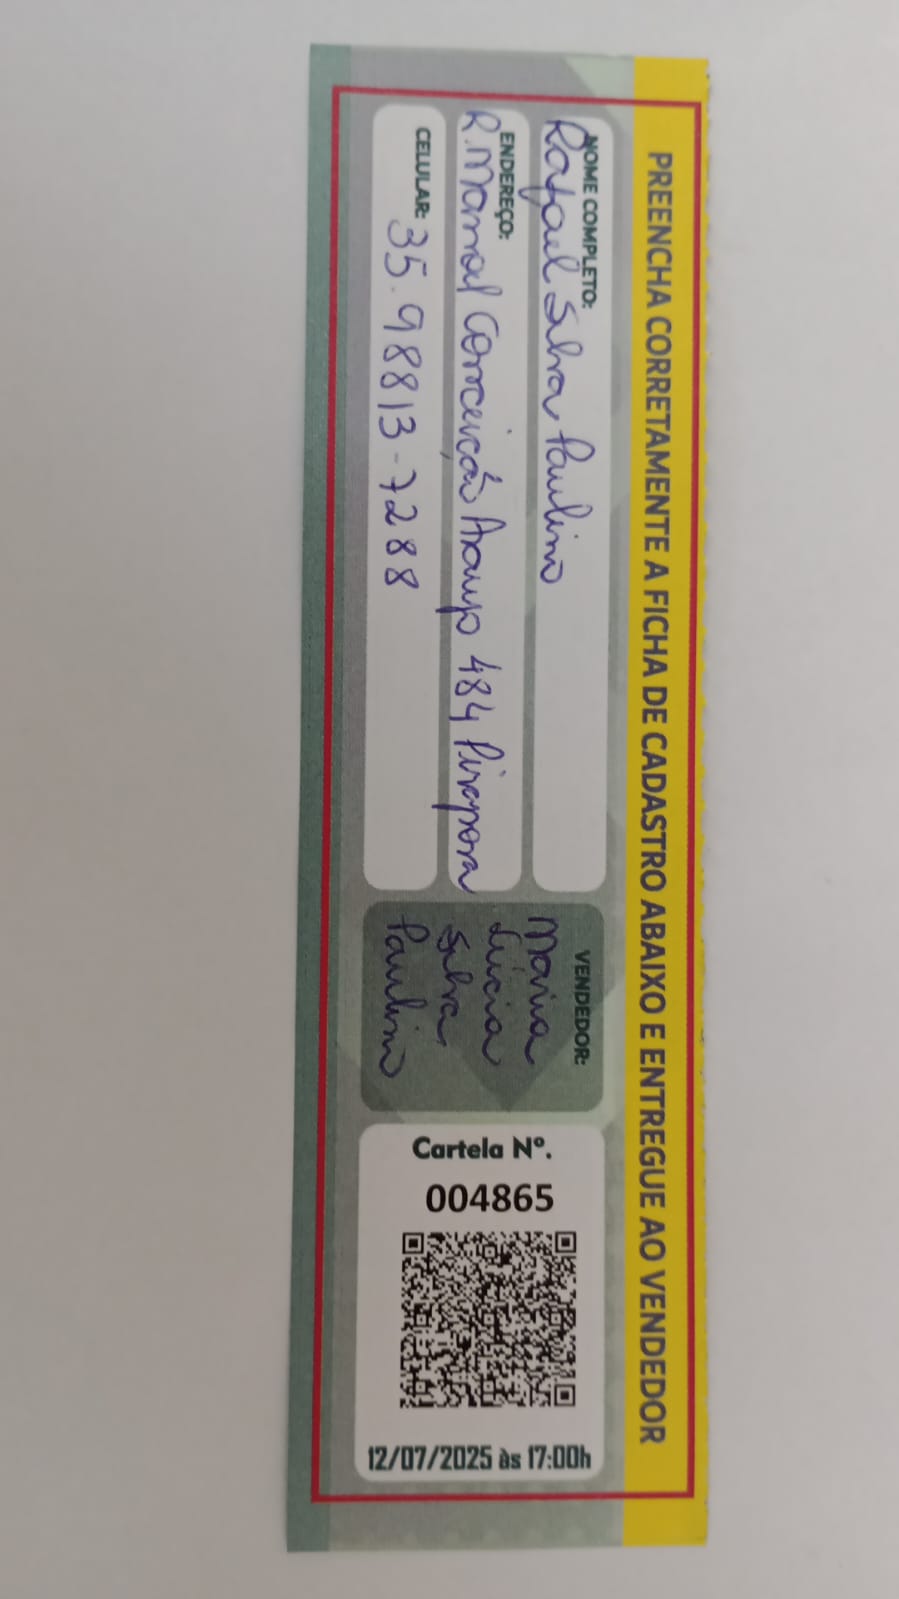 PREENCHA CORRETAMENTE A FICHA DE CADASTRO ABAIXO E ENTREGUE AO VENDEDOR
NOME COMPLETO:
Rafael Silva Paulino
ENDEREÇO:
R. Manoel Conceição Araujo 484 Pirapora
CELULAR: 35.98813-7288
VENDEDOR:
Maria
Lúcia
Silva
Paulino
Cartela Nº.
004865
12/07/2025 às 17:00h